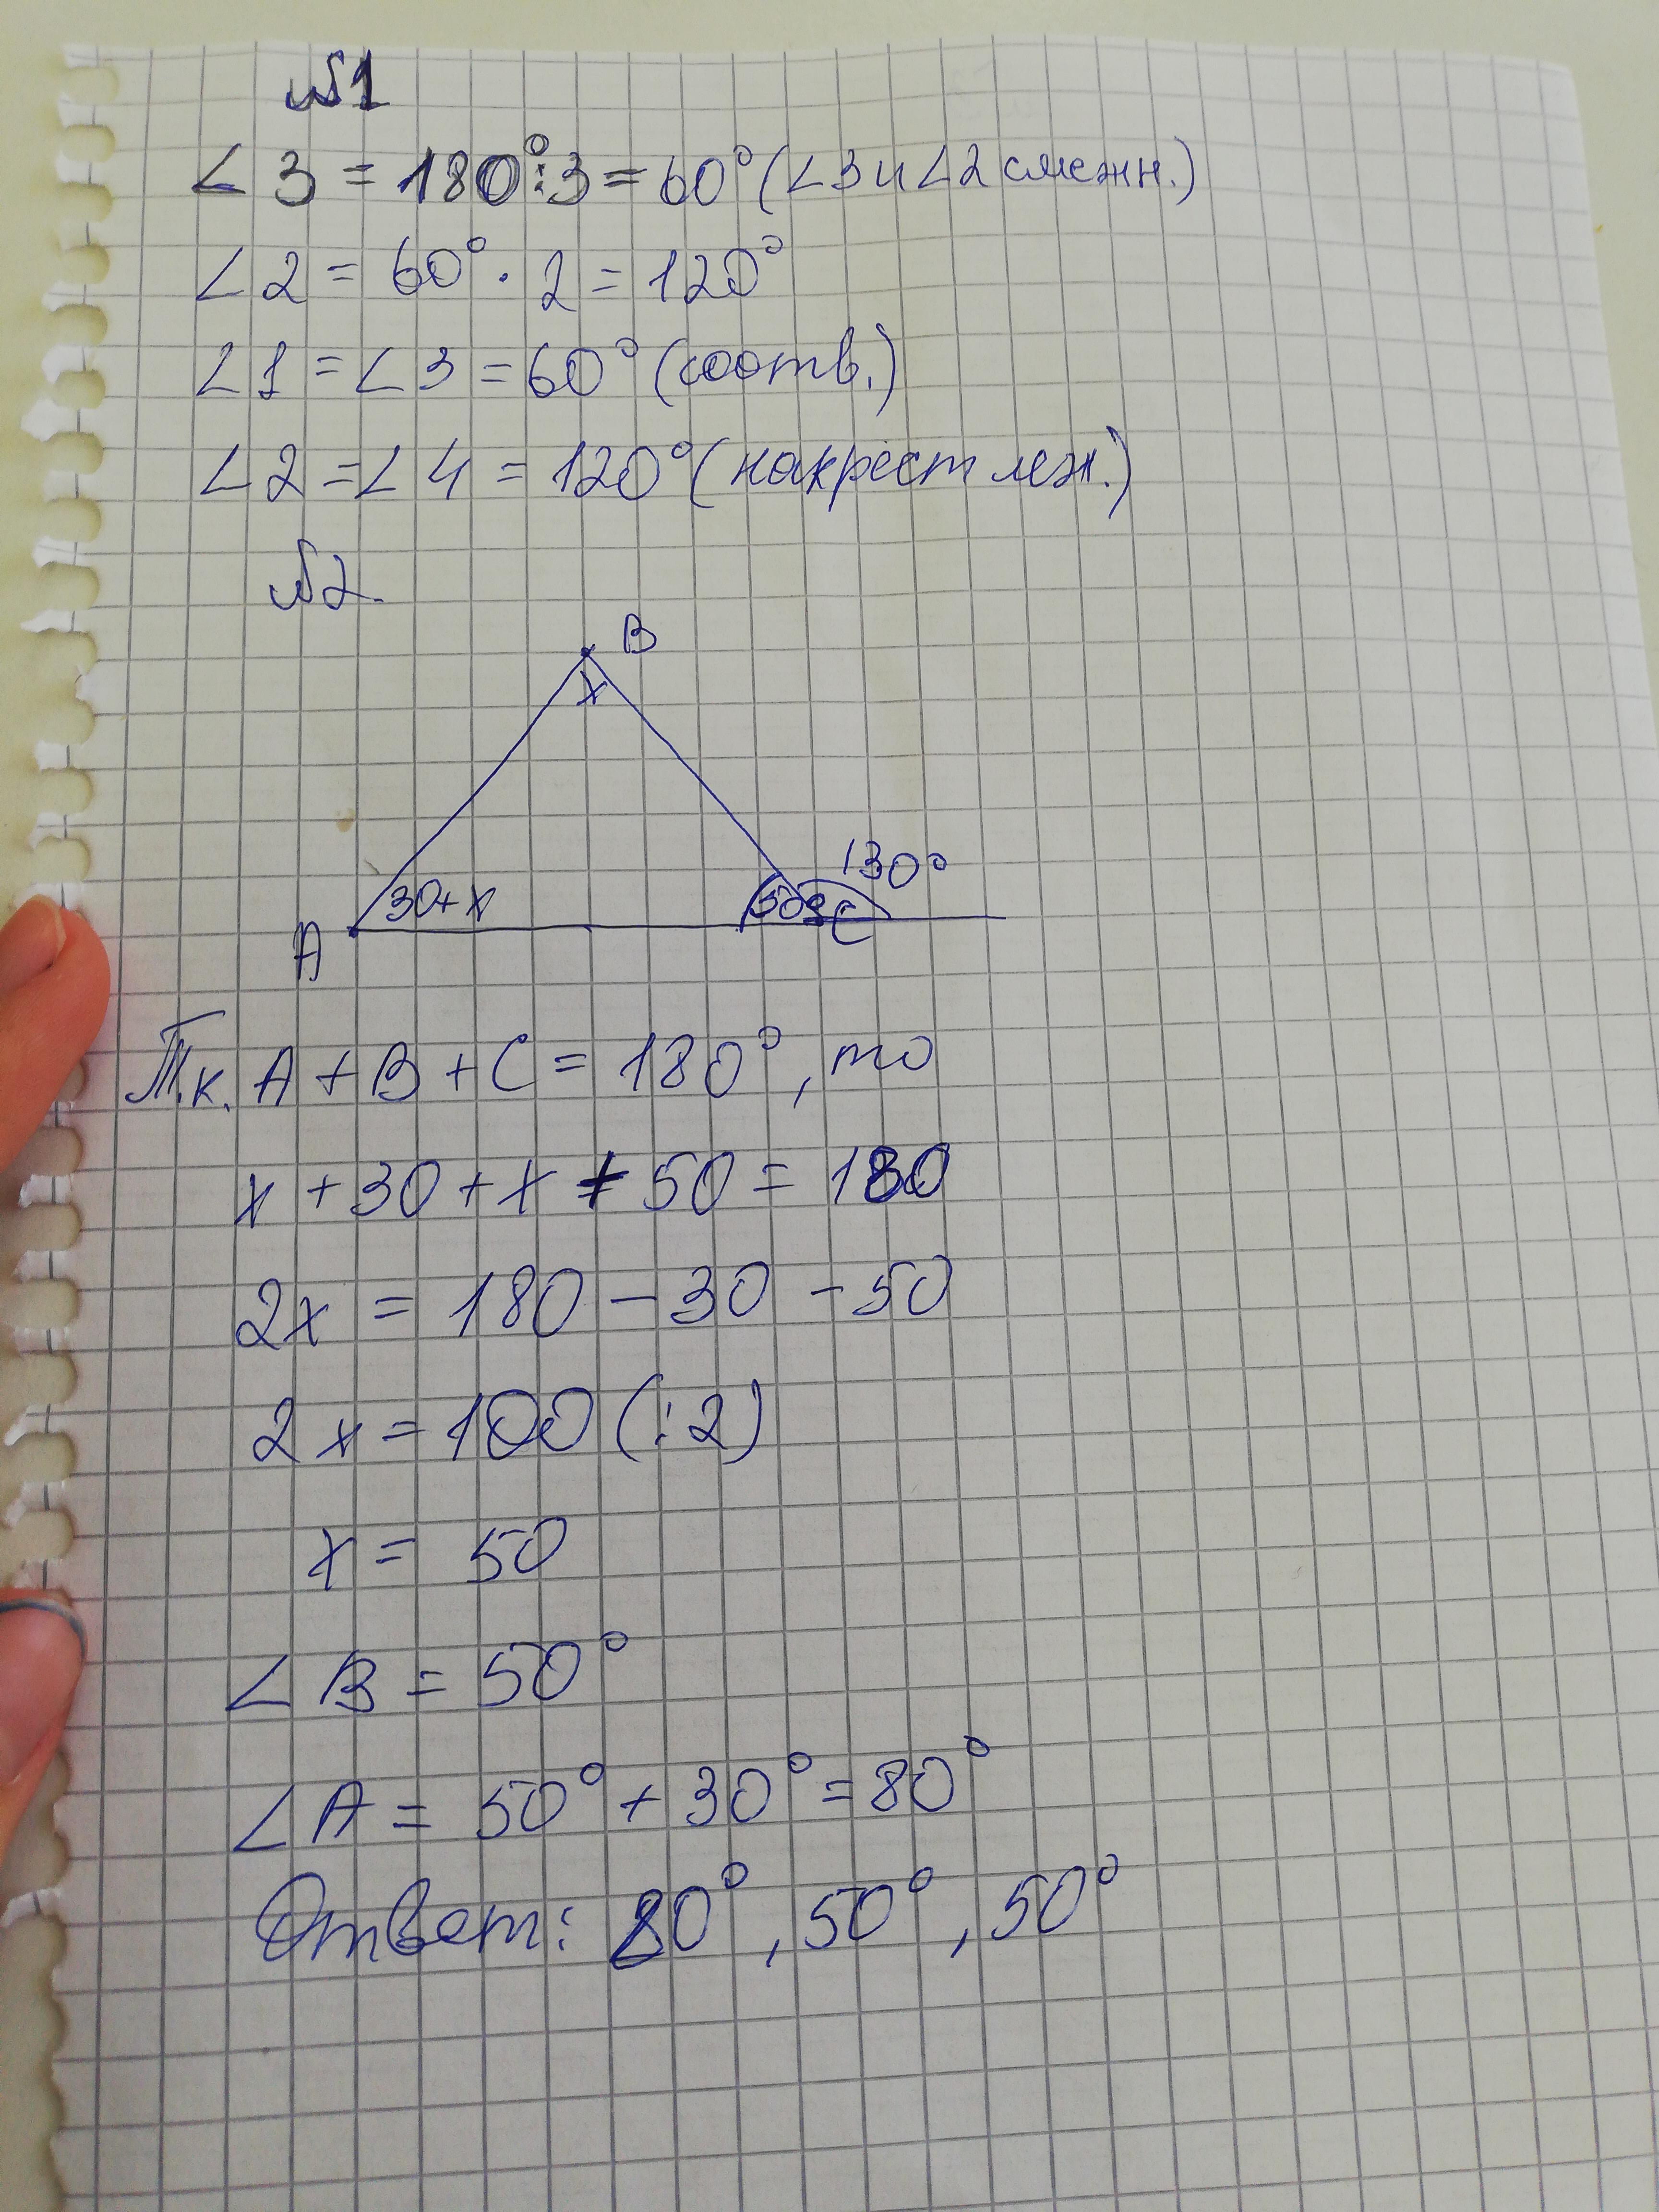 №1
∠3 = 180°:3 = 60° (∠3 и ∠2 смежн.)
∠2 = 60° · 2 = 120°
∠1 = ∠3 = 60° (соотв.)
∠2 = ∠4 = 120° (накрест леж.)
№2.
B
x
130°
30+x
50°
C
A
Т.к. A + B + C = 180°, то
x + 30 + x + 50 = 180
2x = 180 - 30 - 50
2x = 100 (:2)
x = 50
∠B = 50°
∠A = 50° + 30° = 80°
Ответ: 80°, 50°, 50°